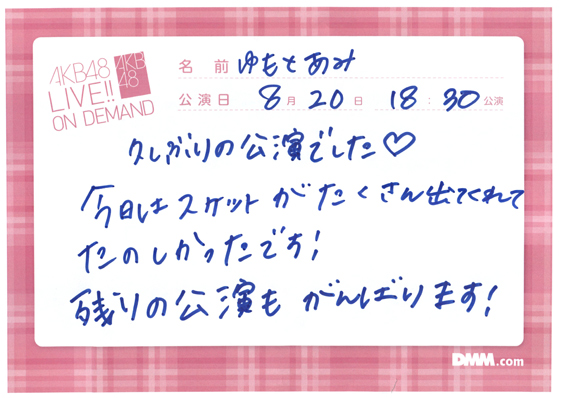 AKB48
LIVE!!
ON DEMAND
AKB
48
名前 ゆもとあみ
公演日 8月20日 18:30公演
久しぶりの公演でした♡
今日はスケットがたくさん出てくれて
たのしかったです!
残りの公演もがんばります!
DMM.com